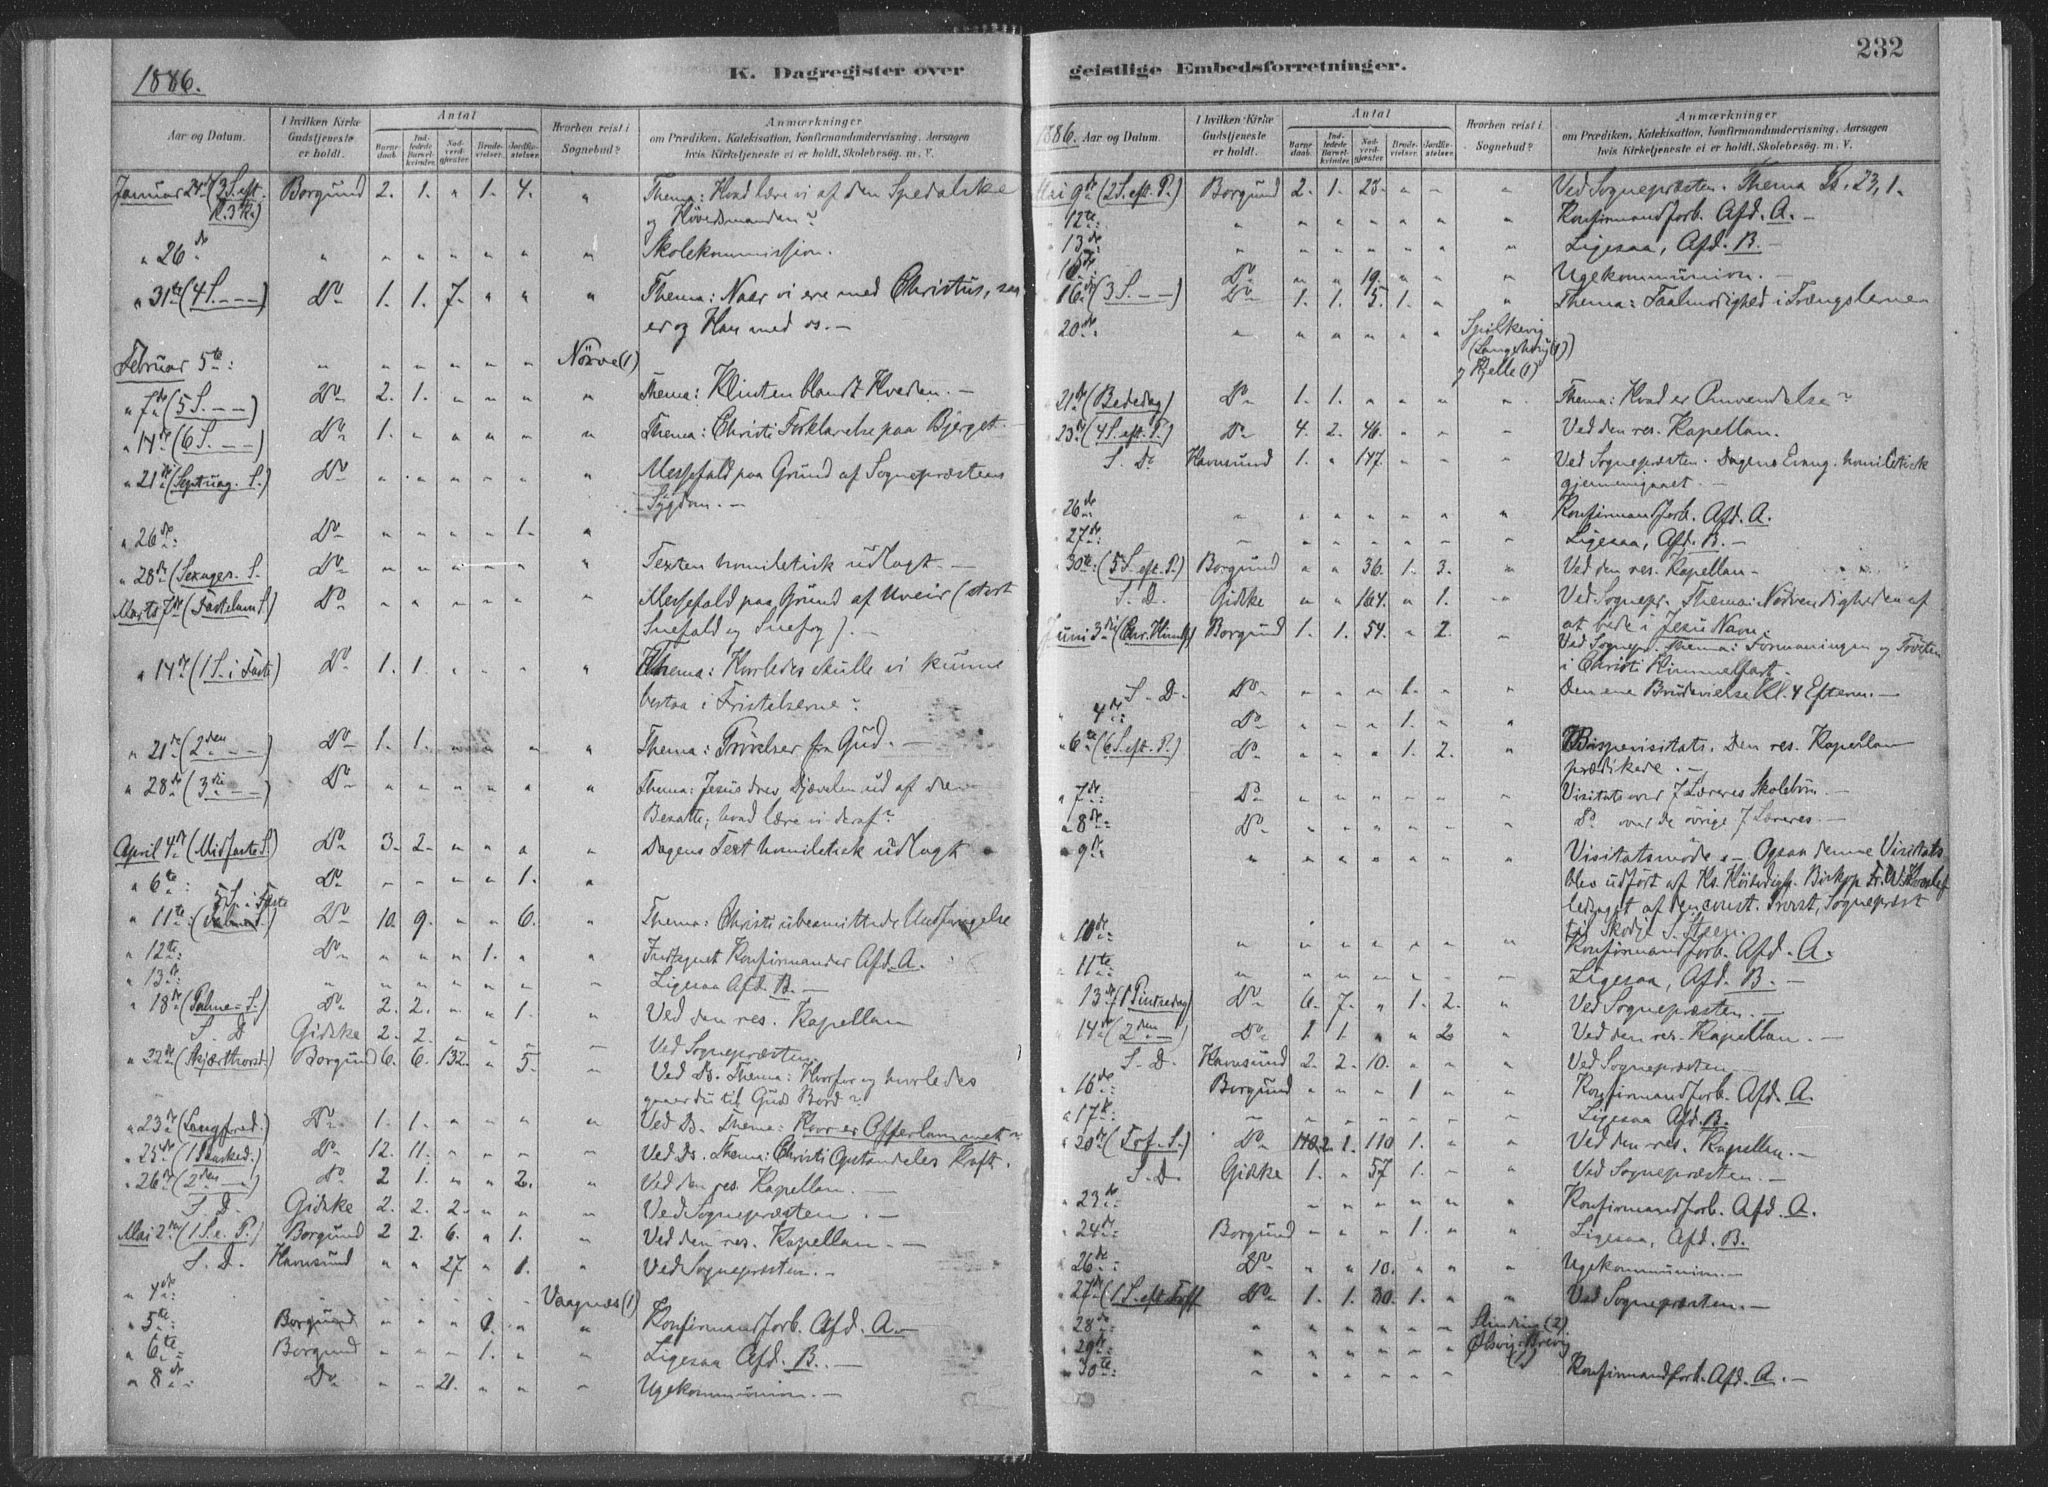 1886.
K. Dagregister over
Aar og Datum.
I hvilken Kirke Gudstjeneste er holdt.
Antal
Barnedaab.
Indledede Barselkvinder.
Nadverdgjester.
Brudevielser.
Jordfæstelser.
Hvorhen reist i Sognebud?
Anmærkninger
om Prædiken, Katekisation, Konfirmandundervisning, Aarsagen
hvis Kirketjeneste ei er holdt, Skolebesøg m. V.
Januar 24de (3 S. eft. Borgund 2. 1. " 1. 4. " Thema: Hvad lære vi af den Spedalske
H. 3 K.) og Høvedsmanden?
" 26de " " " " " " " Skolekommission.
" 31te (4 S. - - -) Do 1. 1. 7. " " " Thema: Naar vi ere med Christus, saa
er og Han med os. -
Februar 5te: " " " " " " Nörve (1)
" 7de (5 S. - -) Do 2. 1. " " " " Thema: Klinten blandt Hveden. -
" 14de (6 S. - -) Do 1. " " " " " Thema: Christi Forklarelse paa Bjerget. -
" 21de (Septuag. S.) Do " " " " " " Messefald paa Grund af Sognepræstens
Sygdom. -
" 26de: Do " " " " 1. "
" 28de (Sexages. S. Do " " " " " " Texten homiletisk udlagt. -
Marts 7de (Fastelavn S.) Do " " " " " " Messefald paa Grund af Uveir (stort
Snefald og Snefog). -
" 14de (1 S. i Faste) Do 1. 1. " " " " Thema: Hvorledes skulle vi kunne
bestaa i Fristelserne?
" 21de (2den - -) Do 1. 1. " " " " Thema: Prövelser fra Gud. -
" 28de (3die - -) Do " " " " " " Thema: Jesus drev Djævelen ud af den
Besatte; hvad lære vi deraf?
April 4de (Midfaste S.) Do 3. 2. " " " " Dagens Text homiletisk udlagt
" 6te: Do " " " " 1. "
5 S. i Faste
" 11te: Do 10. 9. " " 6. " Thema: Christi ubesmittede Undfangelse
" 12te: Do " " " 1. " " Indtegnet Konfirmander Afd. A.
" 13de: " " " " " " " Ligesaa Afd. B. -
" 18de (Palme-S.) Do 2. 2. " " 1. " Ved den res. Kapellan
S. D Gidske 2. 2. " " " " Ved Sognepræsten.
" 22de (Skjærthorsd.) Borgund 6. 6. 132. " 5. " Ved Ds. Thema: Hvorfor og hvorledes
gaaer du til Guds Bord?
" 23de (Langfred.) Do 1. 1. " " " " Ved Ds. Thema: Hvor er Offerlammet?
" 25de (1 Paasked.) Do 12. 11. " " " " Ved Ds. Thema: Christi Opstandelses Kraft.
" 26de (2den -) Do 2 1. " " 2. " Ved den res. Kapellan. -
S. D. Gidske 2. 2. 2. " " " Ved Sognepræsten. -
Mai 2den (1 S. e. P.) Borgund 2 2. 6. " 1. " Ved den res. Kapellan. -
S. D. Havnsund " " 27 " 1. " Ved Sognepræsten. -
" 4de: " " " " " " Vaagnes (1)
" 5te: Borgund " " " 1. " " Konfirmandforb. Afd. A. -
" 6te: Borgund " " " 1. " " Ligesaa Afd. B. -
" 8de: Do " " 21. " " " Ugekommunion. -
232
geistlige Embedsforretninger.
1886. Aar og Datum.
I hvilken Kirke Gudstjeneste er holdt.
Antal
Barnedaab.
Indledede Barselkvinder.
Nadverdgjester.
Brudevielser.
Jordfæstelser.
Hvorhen reist i Sognebud?
Anmærkninger
om Prædiken, Katekisation, Konfirmandundervisning, Aarsagen
hvis Kirketjeneste ei er holdt, Skolebesøg m. V.
Mai 9de (2 S. eft. P.) Borgund 2. 1. " " " Ved Sognepræsten. Thema Ps. 23, 1.
" 12te: " " " " " " " Konfirmandforb. Afd. A. -
" 13de: " " " " " " " Ligesaa, Afd. B. -
" 15de Do " " 19. " " " Ugekommunion. -
" 16de (3 S. - -) Do 1. 1. 5. 1. " " Thema: Taalmodighed i Trængslerne
" 20de: " " " " " " Spilkevig
(Langehaug (1))
og Hjelle (1)
" 21de (Bededag) Do 1. 1. " " " " Thema: Hvad er Omvendelse?
" 23de (4 S. eft. P.) Do 4. 2. 46. " " " Ved den res. Kapellan.
S. D. Havnsund 1. " 147. " " " Ved Sognepræsten. Dagens Evang. homiletisk
gjennemgaaet. -
" 26de: " " " " " " " Konfirmandforb. Afd. A.
" 27de: " " " " " " " Ligesaa, Afd. B. -
" 30te: (5 S. eft. P.) Borgund " " 36. 1. 3. " Ved den res. Kapellan -
S. D. Gidske " " 164. " 1. " Ved Sognepr. Thema: Nödvendigheden af
at bede i Jesu Navn.
Juni 3die (Chr. Himlf.) Borgund 1. 1. 54. " 2. " Ved Sognepr. Thema: Formaningen og Trösten
i Christi Himmelfart. -
S. D. Do " " " 1. " " Den ene Brudevielse Kl. 4 Efterm. -
" 4de: Do " " " 1. " "
" 6te (6 S. eft. P.) Do " " " 1. 2. " Bispevisitats. Den res. Kapellan
prædikede. -
" 7de: Do " " " " " " Visitats over 7 Læreres Skolebörn. -
" 8de: Do " " " " " " Do over de övrige 7 Læreres. -
" 9de: " " " " " " " Visitatsmöde. - Ogsaa denne Visitats
blev udfört af Hs. Höiærdigh. Biskop Fr. W. Hvoslef
ledsaget af den const. Provst, Sognepræst
til Skodje S. Steen.
" 10de: " " " " " " " Konfirmandforb. Afd. A.
" 11te: " " " " " " " Ligesaa, Afd. B. -
" 13de (1 Pintsedag) Do 6. 7. " 1. 2. " Ved Sognepræsten. -
" 14de (2den -) Do 1. 1. " " 2. " Ved den res. Kapellan. -
S. D. Havnsund 2. 2. 10. " " " Ved Sognepræsten. -
" 16de Borgund " " " 1 " " Konfirmandforb. Afd. A.
" 17de: " " " " " " " Ligesaa Afd. B.
" 20de (Tref. S.) Do 2. 1. 110 1. " " Ved den res. Kapellan. -
S. D. Gidske 1. " 57 1. " " Ved Sognepræsten. -
" 23de: " " " " " " Konfirmandforb. Afd. A.
" 24de: Borgund " " " 1. " " Ligesaa, Afd. B.
" 26de: Do " " 10. " " " Ugekommunion. -
" 27de (1 S. eft. Tref Do 1. 1. 30. 1. " " Ved Sognepræsten. -
" 28de: " " " " " (2)
" 29de: " " " " " Ölsvig
(1.)
" 30te: " " " " " " Konfirmandforb. Afd. A. -